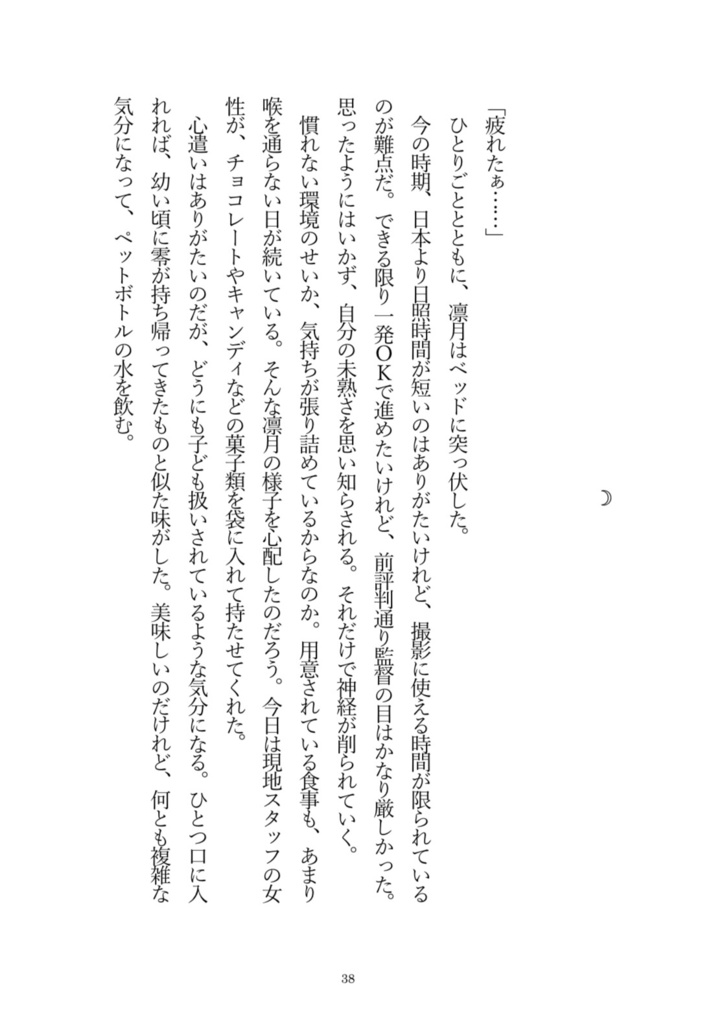 ☽
「疲れたぁ……」
　ひとりごととともに、凛月はベッドに突っ伏した。
　今の時期、日本より日照時間が短いのはありがたいけれど、撮影に使える時間が限られている
のが難点だ。できる限り一発ＯＫで進めたいけれど、前評判通り監督の目はかなり厳しかった。
思ったようにはいかず、自分の未熟さを思い知らされる。それだけで神経が削られていく。
　慣れない環境のせいか、気持ちが張り詰めているからなのか。用意されている食事も、あまり
喉を通らない日が続いている。そんな凛月の様子を心配したのだろう。今日は現地スタッフの女
性が、チョコレートやキャンディなどの菓子類を袋に入れて持たせてくれた。
　心遣いはありがたいのだが、どうにも子ども扱いされているような気分になる。ひとつ口に入
れれば、幼い頃に零が持ち帰ってきたものと似た味がした。美味しいのだけれど、何とも複雑な
気分になって、ペットボトルの水を飲む。
38